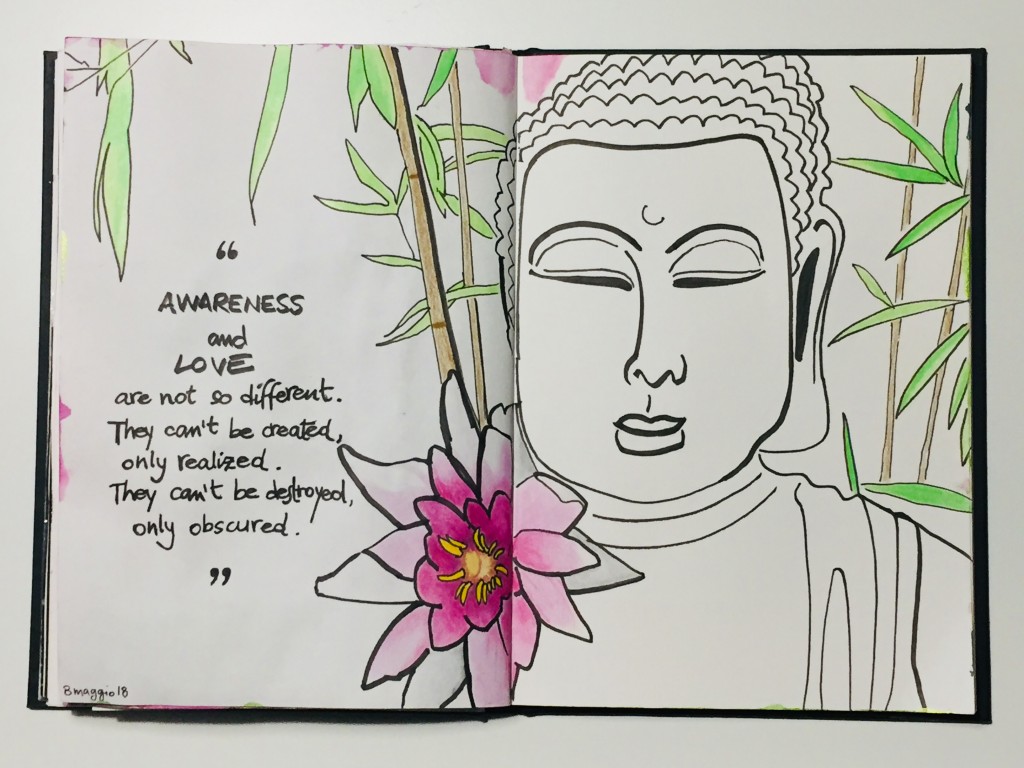 “
AWARENESS
and
LOVE
are not so different.
They can't be created,
only realized.
They can't be destroyed,
only obscured.
”
8maggio18